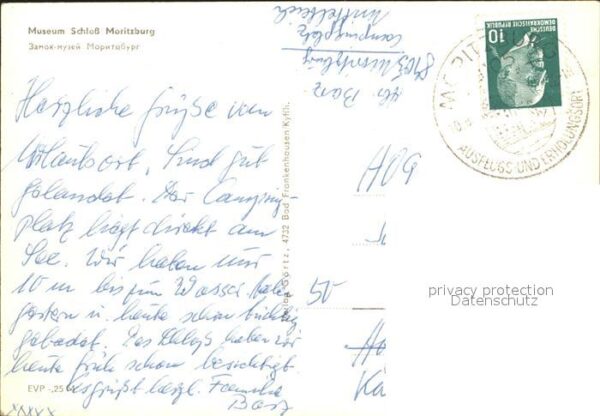 Museum Schloß Moritzburg
Замок-музей Моритцбург
Herzliche Grüße vom
Urlaubsort. Sind gut
gelandet. Der Camping-
platz liegt direkt am
See. Wir haben nur
10 m bis zum Wasser. Haben
gestern u. heute schon tüchtig
gebadet. Das Schloß haben wir
heute früh schon besichtigt.
Es grüßt herzl. Familie
Barz
EVP -,25
xxxxx
Görtz, 4732 Bad Frankenhausen/Kyffh.
Abs. Barz
8105 Moritzburg
Campingplatz
Mittelteich
10
DEUTSCHE
DEMOKRATISCHE REPUBLIK
AUSFLUGS- UND ERHOLUNGSORT
50
privacy protection
Datenschutz